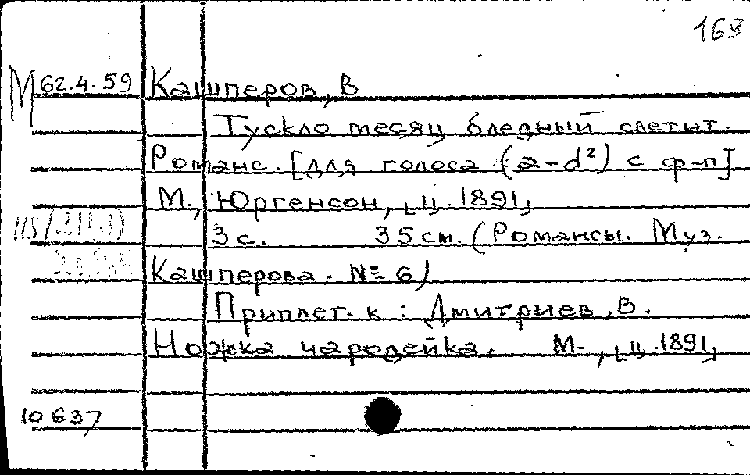 168
М 62.4.59 Кашперов, В
Тускло месяц бледный светит.
Романс. [для голоса (a-d²) с ф-п]
М., Юргенсон, ц. 1891,
3 с. 35 см. (Романсы. Муз.
Кашперова. № 6)
Приплет. к : Дмитриев, В.
Ножка чародейка. М., ц. 1891,
10637